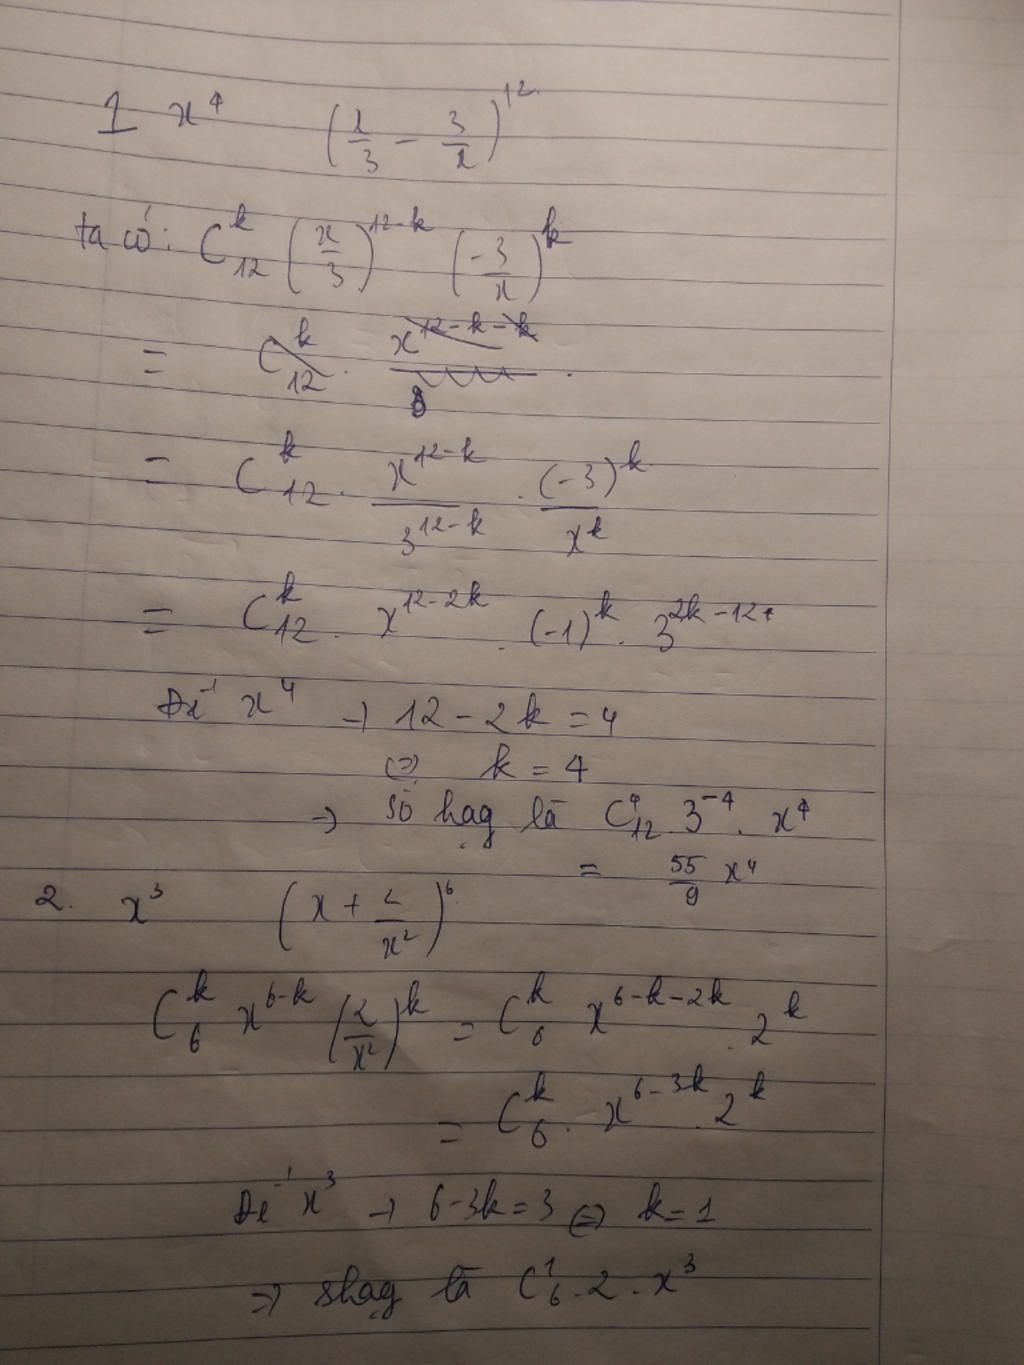 1 x^4 (x/3 - 3/x)^12
ta có: C_12^k (x/3)^(12-k) (-3/x)^k
= C_12^k . x^(12-k-k)
= C_12^k . x^(12-k)/3^(12-k) . (-3)^k/x^k
= C_12^k . x^(12-2k) . (-1)^k . 3^(2k-12)
Để x^4 → 12 - 2k = 4
⇔ k = 4
→ số hạg là C_12^4 . 3^-4 . x^4
= 55/9 x^4
2. x^3 (x + 2/x^2)^6
C_6^k x^(6-k) (2/x^2)^k = C_6^k x^(6-k-2k) . 2^k
= C_6^k . x^(6-3k) . 2^k
Để x^3 → 6-3k = 3 ⇔ k = 1
⇒ shạg là C_6^1 . 2 . x^3